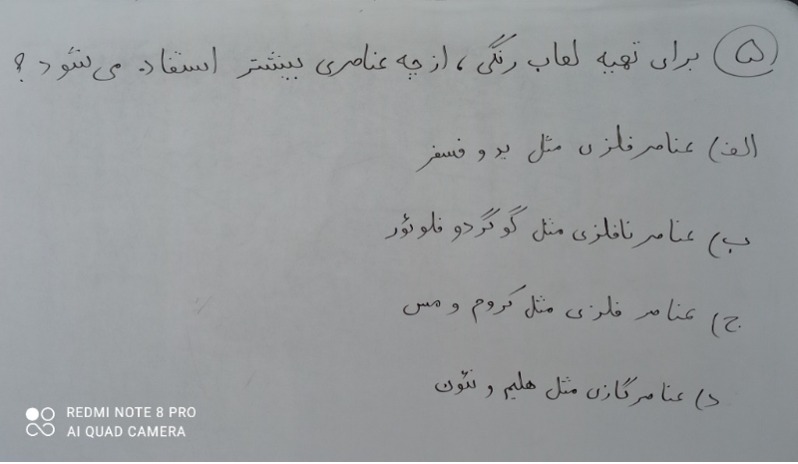 ۵) برای تهیه لعاب رنگی، از چه عناصری بیشتر استفاده می‌شود؟
الف) عناصر فلزی مثل ید و فسفر
ب) عناصر نافلزی مثل گوگرد و فلوئور
ج) عناصر فلزی مثل کروم و مس
د) عناصر گازی مثل هلیم و نئون
REDMI NOTE 8 PRO
AI QUAD CAMERA